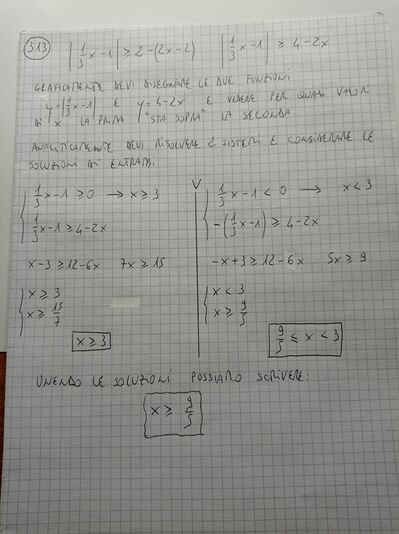 313 |1/3 x - 1| ≥ 2 - (2x - 2) |1/3 x - 1| ≥ 4 - 2x
GRAFICAMENTE DEVI DISEGNARE LE DUE FUNZIONI
y = |1/3 x - 1| E y = 4 - 2x E VEDERE PER QUALI VALORI
DI x LA PRIMA "STA SOPRA" LA SECONDA
ANALITICAMENTE DEVI RISOLVERE 2 SISTEMI E CONSIDERARE LE
SOLUZIONI DI ENTRAMBI.
{ 1/3 x - 1 ≥ 0 → x ≥ 3 V { 1/3 x - 1 < 0 → x < 3
1/3 x - 1 ≥ 4 - 2x -(1/3 x - 1) ≥ 4 - 2x
x - 3 ≥ 12 - 6x 7x ≥ 15 -x + 3 ≥ 12 - 6x 5x ≥ 9
{ x ≥ 3 { x < 3
x ≥ 15/7 x ≥ 9/5
x ≥ 3 9/5 ≤ x < 3
UNENDO LE SOLUZIONI POSSIAMO SCRIVERE:
x ≥ 9/5